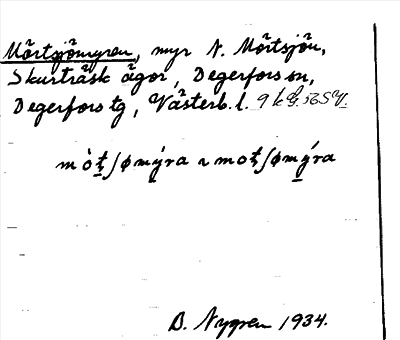 Mörtsjömyren, myr N. Mörtsjön,
Skurträsk ägor, Degerfors sn,
Degerfors tg, Västerb. l.
mò̀ʈʃømýra ~ moʈʃømýra
D. Nygren 1934.